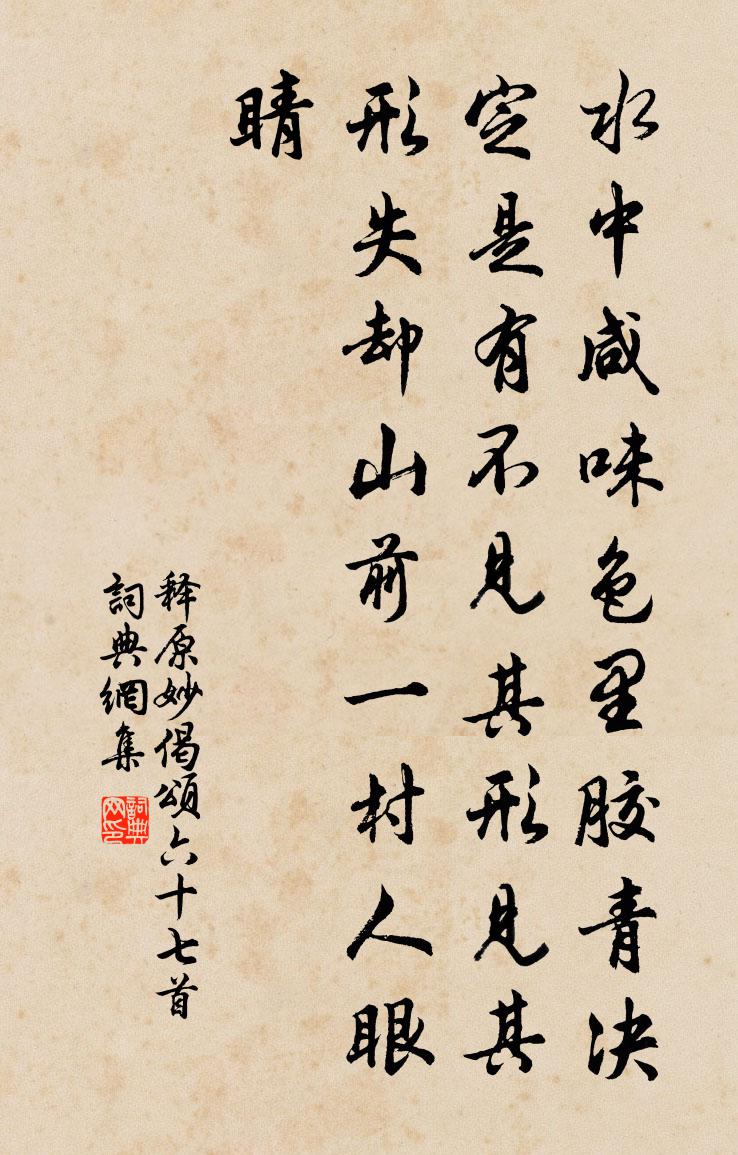 水中咸味色里胶青决
定是有不见其形见其
形失却山前一村人眼
睛
释原妙偈颂六十七首
詞典網集
詞典网印